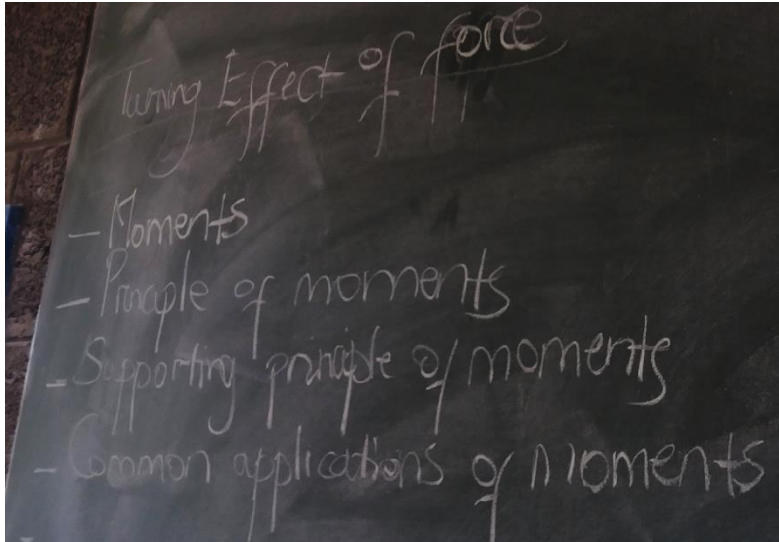 Turning Effect of force
- Moments
- Principle of moments
- Supporting principle of moments
- Common applications of Moments